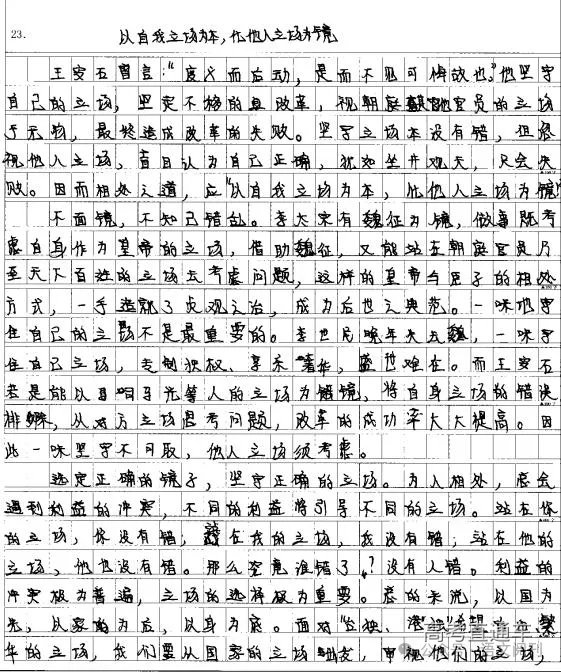 23.
以自我立场为本,化他人立场为镜
王安石曾言:“度义而后动,是而不见可悔故也。”他坚守
自己的立场,坚定不移的 改革,视朝廷其他官员的立场
于无物,最终造成改革的失败。坚守立场本没有错,但忽
视他人立场,盲目认为自己正确,犹如坐井观天,只会失
败。因而相处之道,应“以自我立场为本,化他人立场为镜”
不面镜,不知己错乱。李太宗有魏征为镜,做事既考
虑自身作为皇帝的立场,借助魏征,又能站在朝廷官员乃
至天下百姓的立场去考虑问题,这样的皇帝与臣子的相处
方式,一手造就了贞观之治,成为后世之典范。一味地守
住自己的立场不是最重要的。李世民晚年失去魏,一味守
住自己立场,专制独权、享乐奢华,盛世难在。而王安石
若是能以司马光等人的立场为镜,将自身立场的错误
排解,从对方立场思考问题,改革的成功率大大提高。因
此一味坚守不可取,他人立场须考虑。
选定正确的镜子,坚守正确的立场。为人相处,总会
遇到利益的冲突,不同的利益将引导不同的立场。站在你
的立场,你没有错,站在我的立场,我没有错,站在他的
立场,他也没有错。那么究竟谁错了?没有人错。利益的
冲突极为普遍,立场的选择极为重要。总的来说,以国为
先,以家为后,以身为底。面对“台独、港独”
年的立场,我们要从国家的立场出发,审视他们的立场,
高考直通车